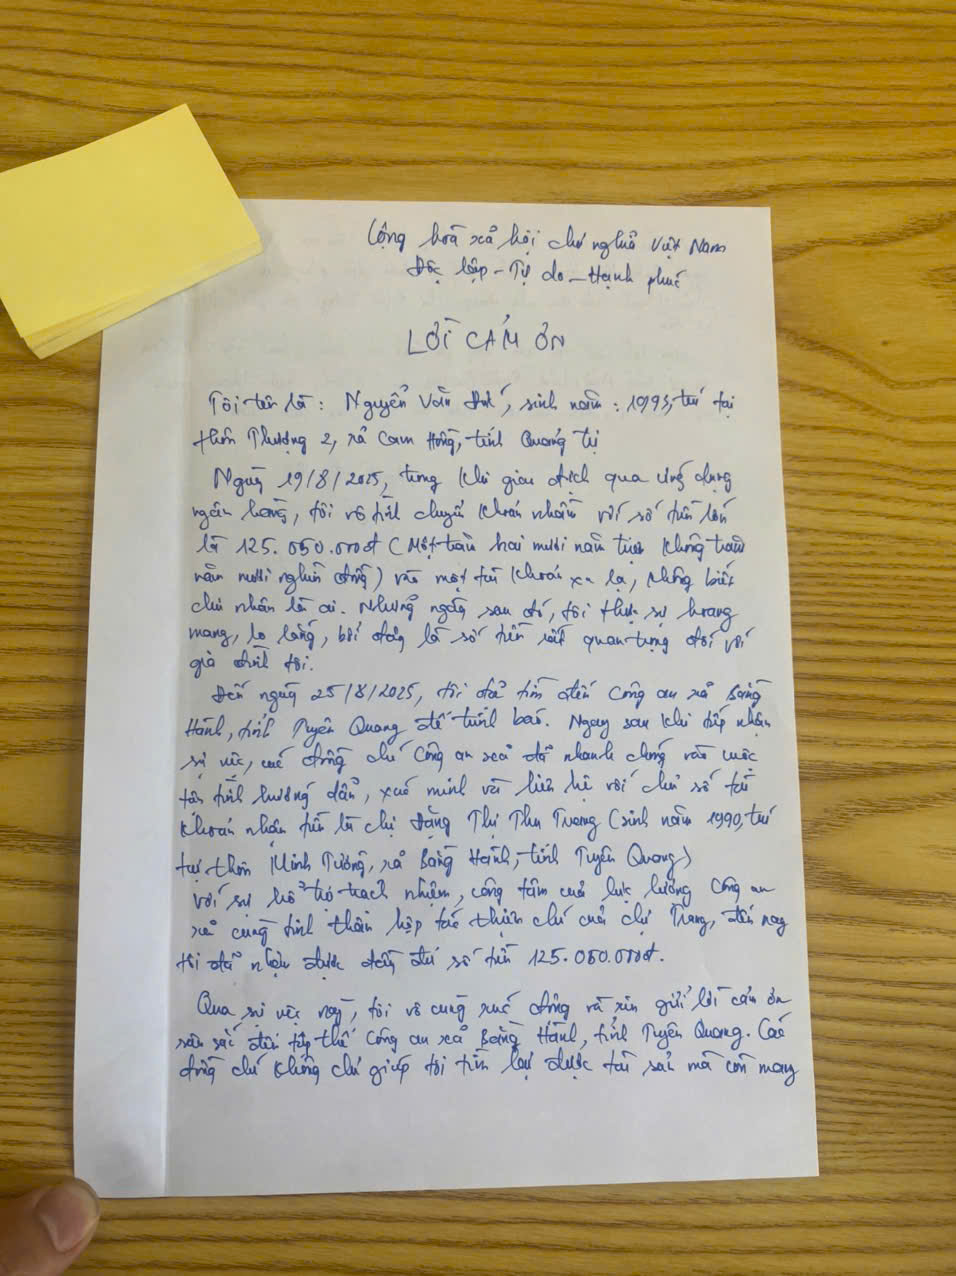 Cộng hoà xã hội chủ nghĩa Việt Nam
Độc lập - Tự do - Hạnh phúc
LỜI CẢM ƠN
Tôi tên là: Nguyễn Văn, sinh năm: 1993, trú tại
thôn Thượng 2, xã Cam Hồng, tỉnh Quảng Trị
Ngày 19/8/2025, trong khi giao dịch qua ứng dụng
ngân hàng, tôi vô tình chuyển khoản nhầm với số tiền lớn
là 125.050.000đ (Một trăm hai mươi năm triệu không trăm
năm mươi nghìn đồng) vào một tài khoản xa lạ, không biết
chủ nhân là ai. Những ngày sau đó, tôi thực sự hoang
mang, lo lắng, bởi đây là số tiền rất quan trọng đối với
gia đình tôi.
Đến ngày 25/8/2025, tôi đã tìm đến Công an xã Bằng
Hành, tỉnh Tuyên Quang để trình báo. Ngay sau khi tiếp nhận
sự việc, các đồng chí Công an xã đã nhanh chóng vào cuộc
tận tình hướng dẫn, xác minh và liên hệ với chủ số tài
khoản nhận tiền là chị Đặng Thị Thu Trang (sinh năm 1990, trú
tại thôn Minh Tường, xã Bằng Hành, tỉnh Tuyên Quang)
Với sự hỗ trợ trách nhiệm, công tâm của lực lượng Công an
xã cùng tinh thần hợp tác thiện chí của chị Trang, đến nay
tôi đã nhận được đầy đủ số tiền 125.050.000đ.
Qua sự việc này, tôi vô cùng xúc động và xin gửi lời cảm ơn
sâu sắc đến tập thể Công an xã Bằng Hành, tỉnh Tuyên Quang. Các
đồng chí không chỉ giúp tôi tìm lại được tài sản mà còn mang